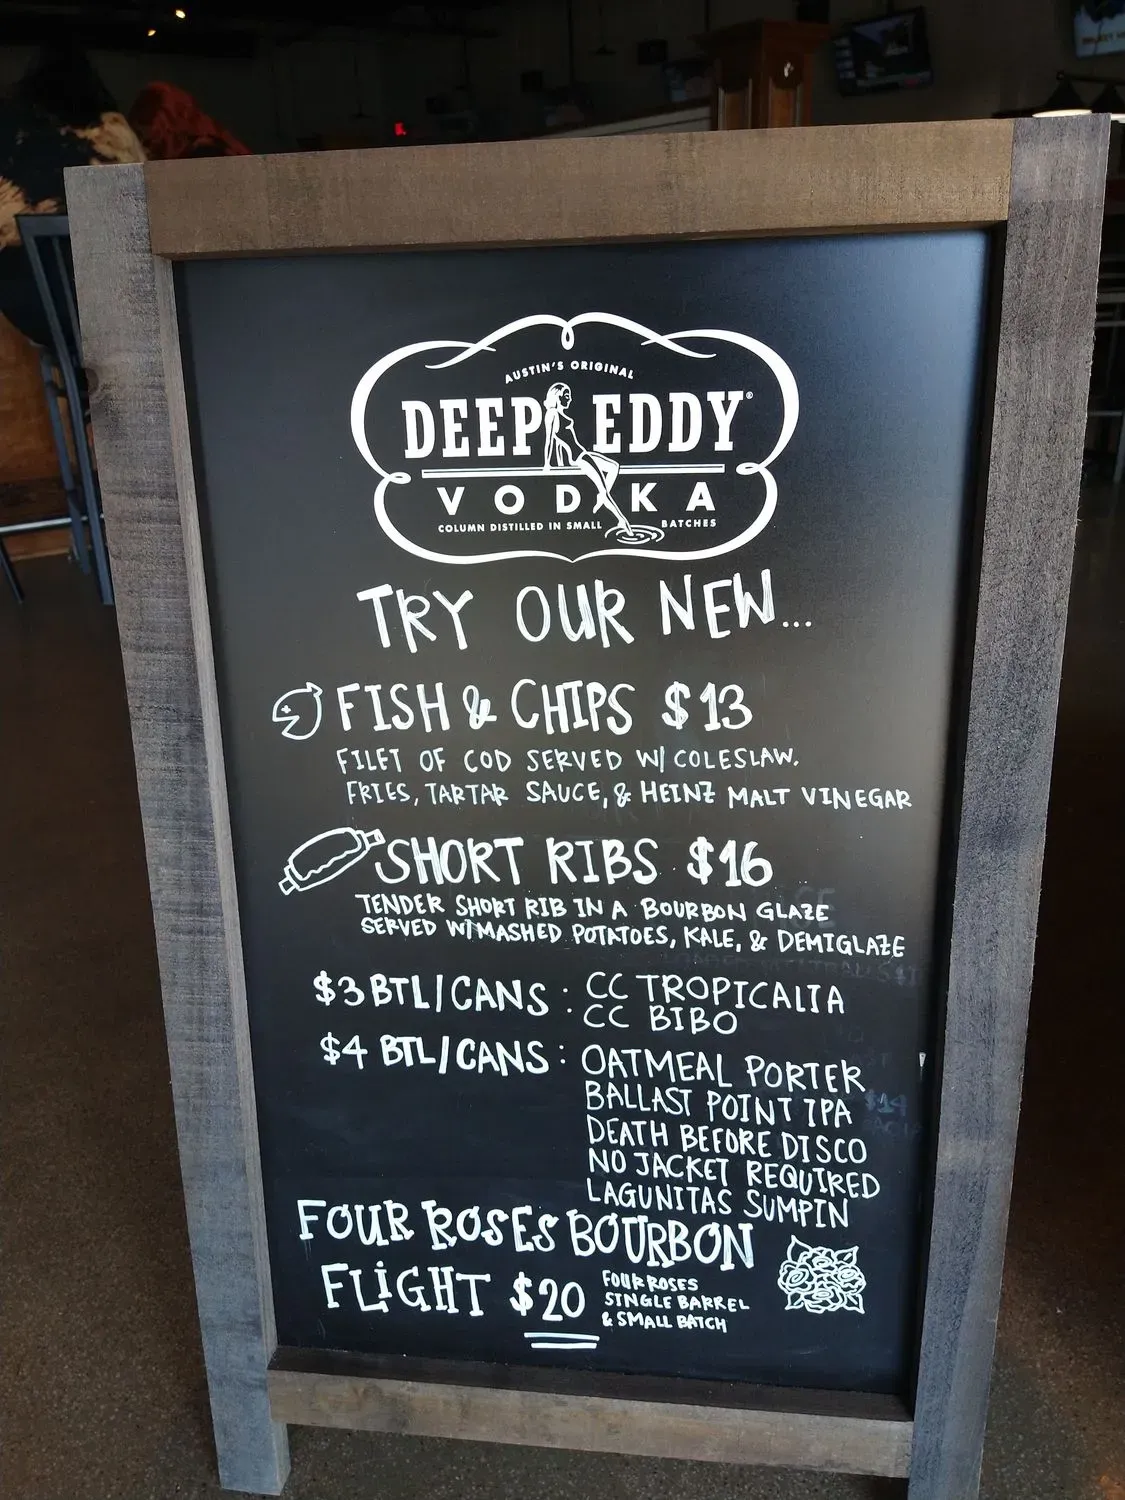 AUSTIN'S ORIGINAL
DEEP EDDY®
VODKA
COLUMN DISTILLED IN SMALL BATCHES
TRY OUR NEW...
FISH & CHIPS $13
FILET OF COD SERVED W/ COLESLAW.
FRIES, TARTAR SAUCE, & HEINZ MALT VINEGAR
SHORT RIBS $16
TENDER SHORT RIB IN A BOURBON GLAZE
SERVED W/MASHED POTATOES, KALE, & DEMIGLAZE
$3 BTL/CANS: CC TROPICALIA
CC BIBO
$4 BTL/CANS: OATMEAL PORTER
BALLAST POINT IPA
DEATH BEFORE DISCO
NO JACKET REQUIRED
LAGUNITAS SUMPIN
FOUR ROSES BOURBON
FLIGHT $20
FOUR ROSES
SINGLE BARREL
& SMALL BATCH